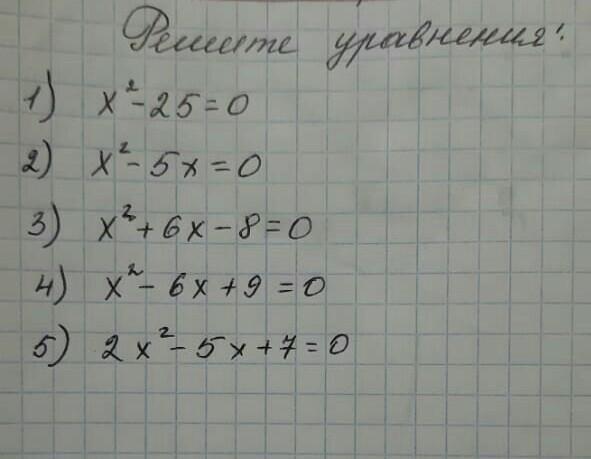 Решите уравнения:
1) x² - 25 = 0
2) x² - 5x = 0
3) x² + 6x - 8 = 0
4) x² - 6x + 9 = 0
5) 2x² - 5x + 7 = 0